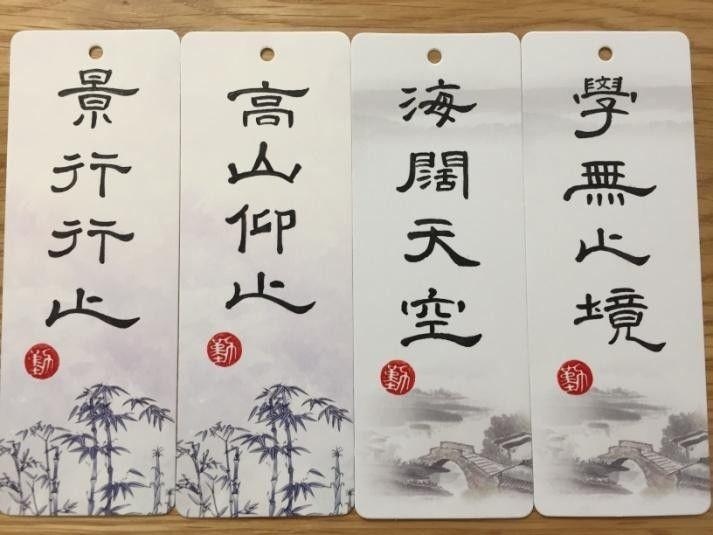 學無止境
勤
海闊天空
勤
高山仰止
勤
景行行止
勤